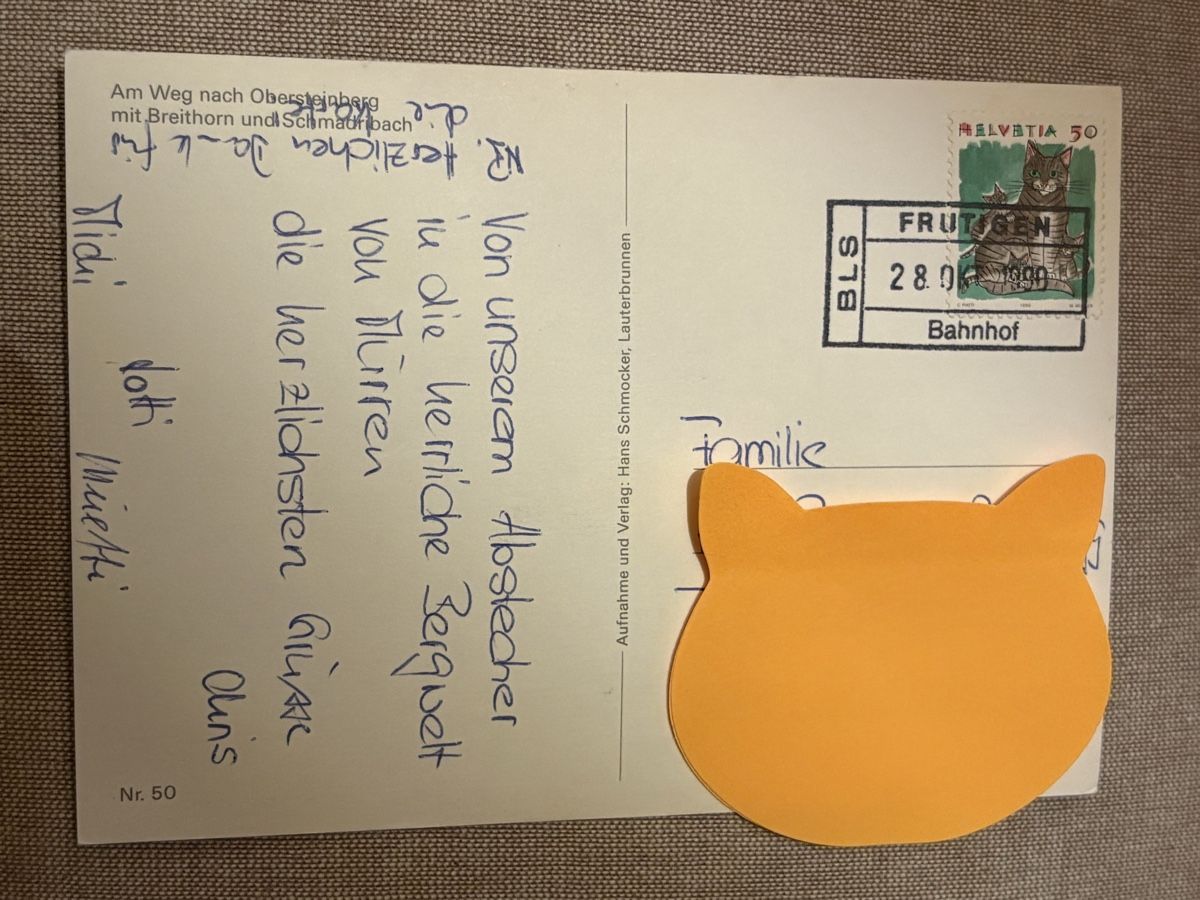 Am Weg nach Obersteinberg
mit Breithorn und Schmadribach
Von unserem Abstecher
in die herrliche Bergwelt
von Mürren
die herzlichsten Grüsse
Chris
Lotti
Michi
Herzlichen Dank für
die Karte
Nr. 50
Aufnahme und Verlag: Hans Schmocker, Lauterbrunnen
HELVETIA 50
BLS
FRUTIGEN
28. OK
Bahnhof
Familie